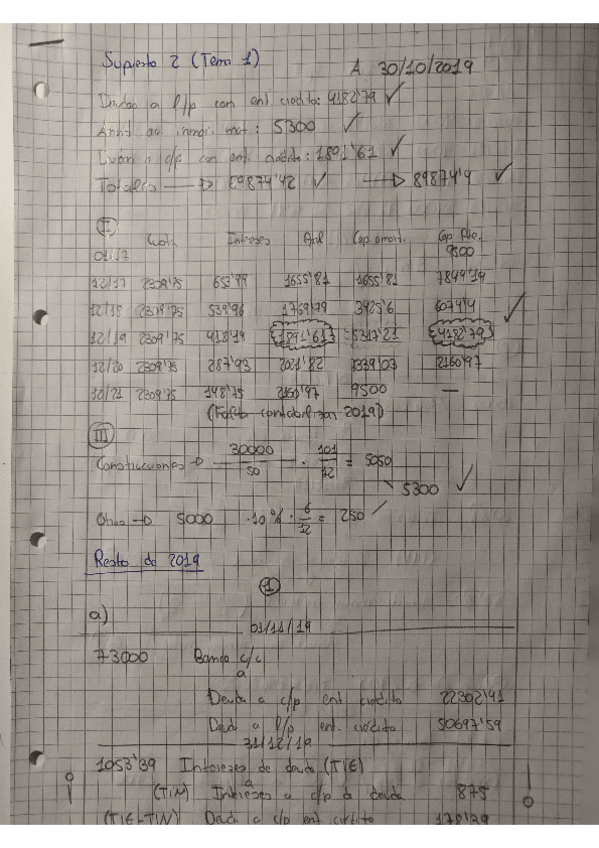 Supuesto 2 (Tema 1) A 30/10/2019
Deudas a l/p con ent credito: 4182'79 ✓
Amtd ac inmov. mat: 5300 ✓
Deudas a c/p con ent. credito: 1891'61 ✓
Totales → 89874'42 ✓ → 89874'4 ✓
II
Cuota Intereses Aml Cap amort. Cap Pte.
01/17 9500
12/17 2309'75 1655'81 1655'81 7844'19
12/18 2309'75 539'96 1769'79 3425'6 6074'4 ✓
12/19 2309'75 418'14 1891'61 5317'21 4182'79
12/20 2309'75 287'93 2021'82 7339'03 2160'97
12/21 2309'75 148'75 2160'97 9500 —
(Falta contabilizar 2019)
III
Construcciones → 30000/50 · 101/12 = 5050
5300 ✓
Otros → 5000 · 10% · 6/12 = 250
Resto de 2019
1
a)
01/11/19
73000 Banco c/c
a
Deuda a c/p ent crédito 22302'41
Deuda a l/p ent. crédito 50697'59
31/12/19
1053'39 Intereses de deuda (TIE)
a
(TIN) Intereses a c/p de deuda 875
(TIE-TIN) Deuda a c/p ent crédito 178'39